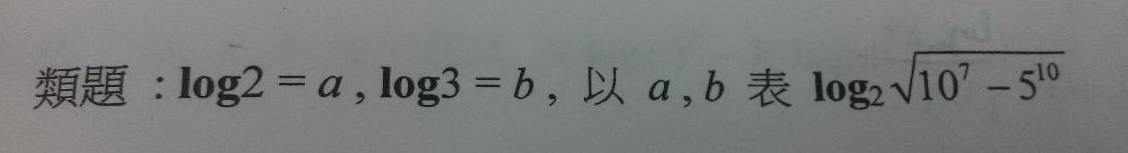 類題 : log2 = a , log3 = b , 以 a , b 表 log₂√(10⁷ − 5¹⁰)